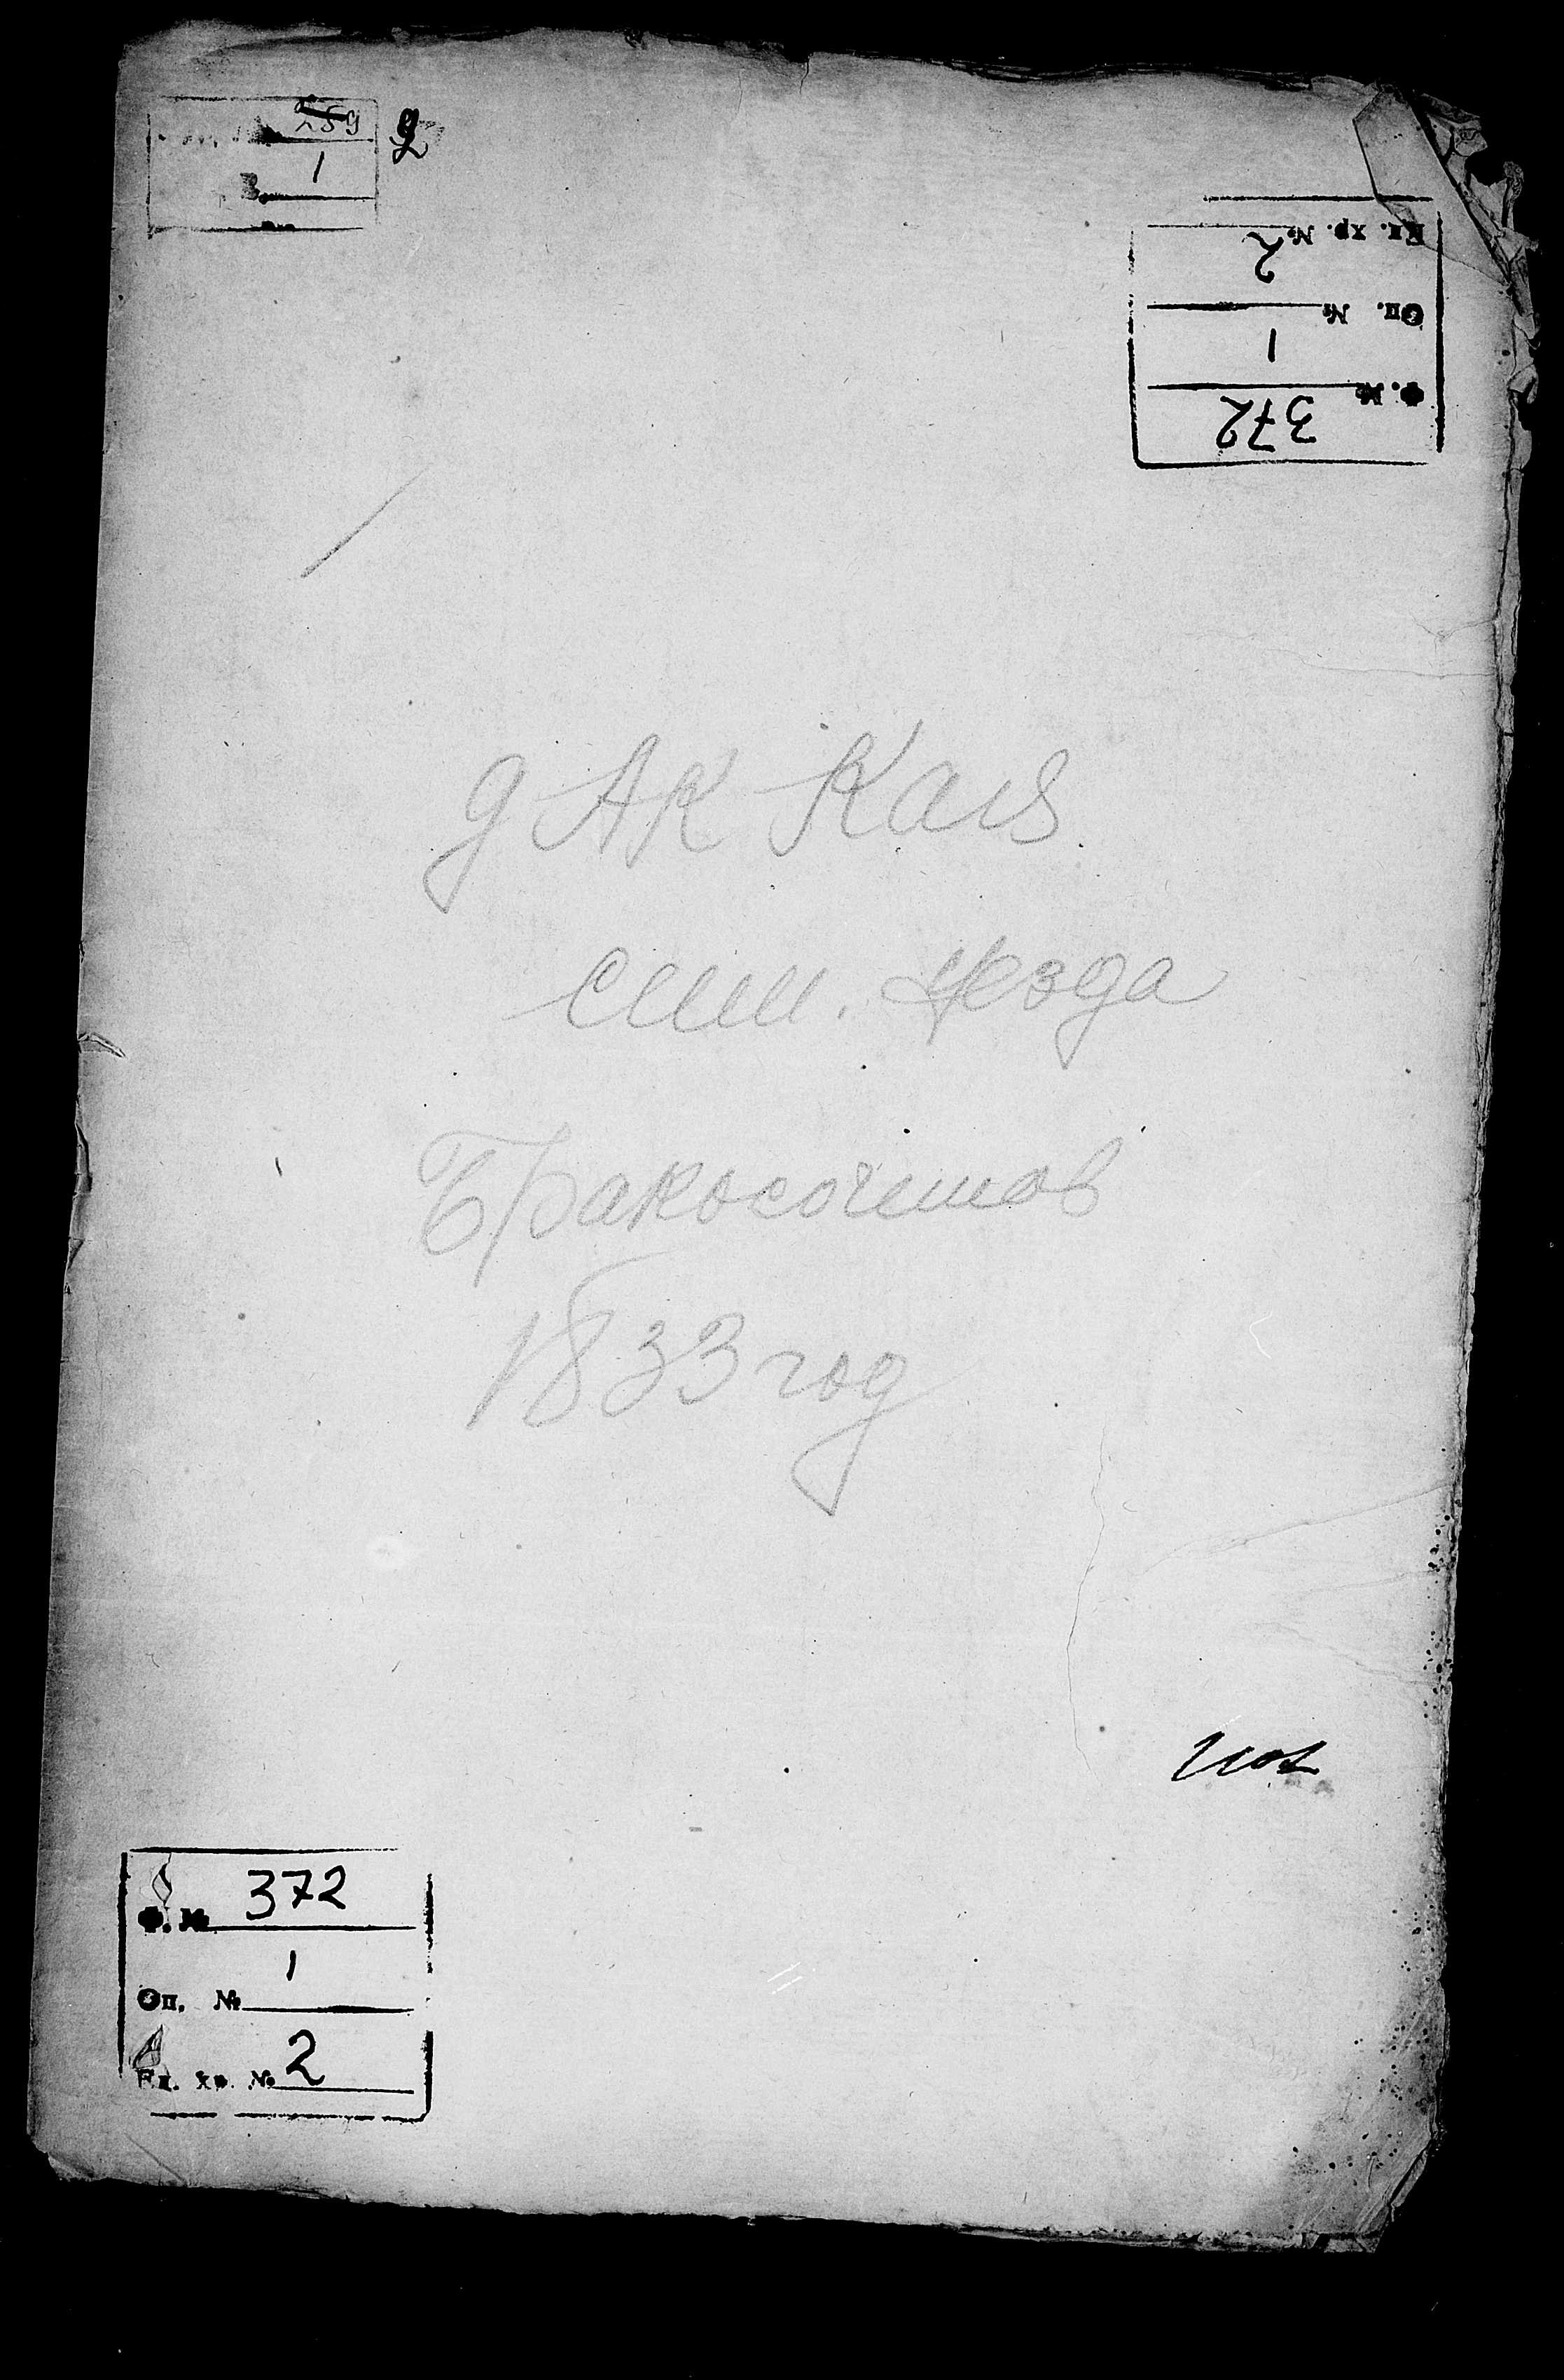 259 2
1
Ф. № 372
Оп. № 1
Ед. хр. № 2
д Ак Кая
сим. уезда
Бракосочетав
1833 год
Ф. № 372
Оп. № 1
Ед. хр. № 2